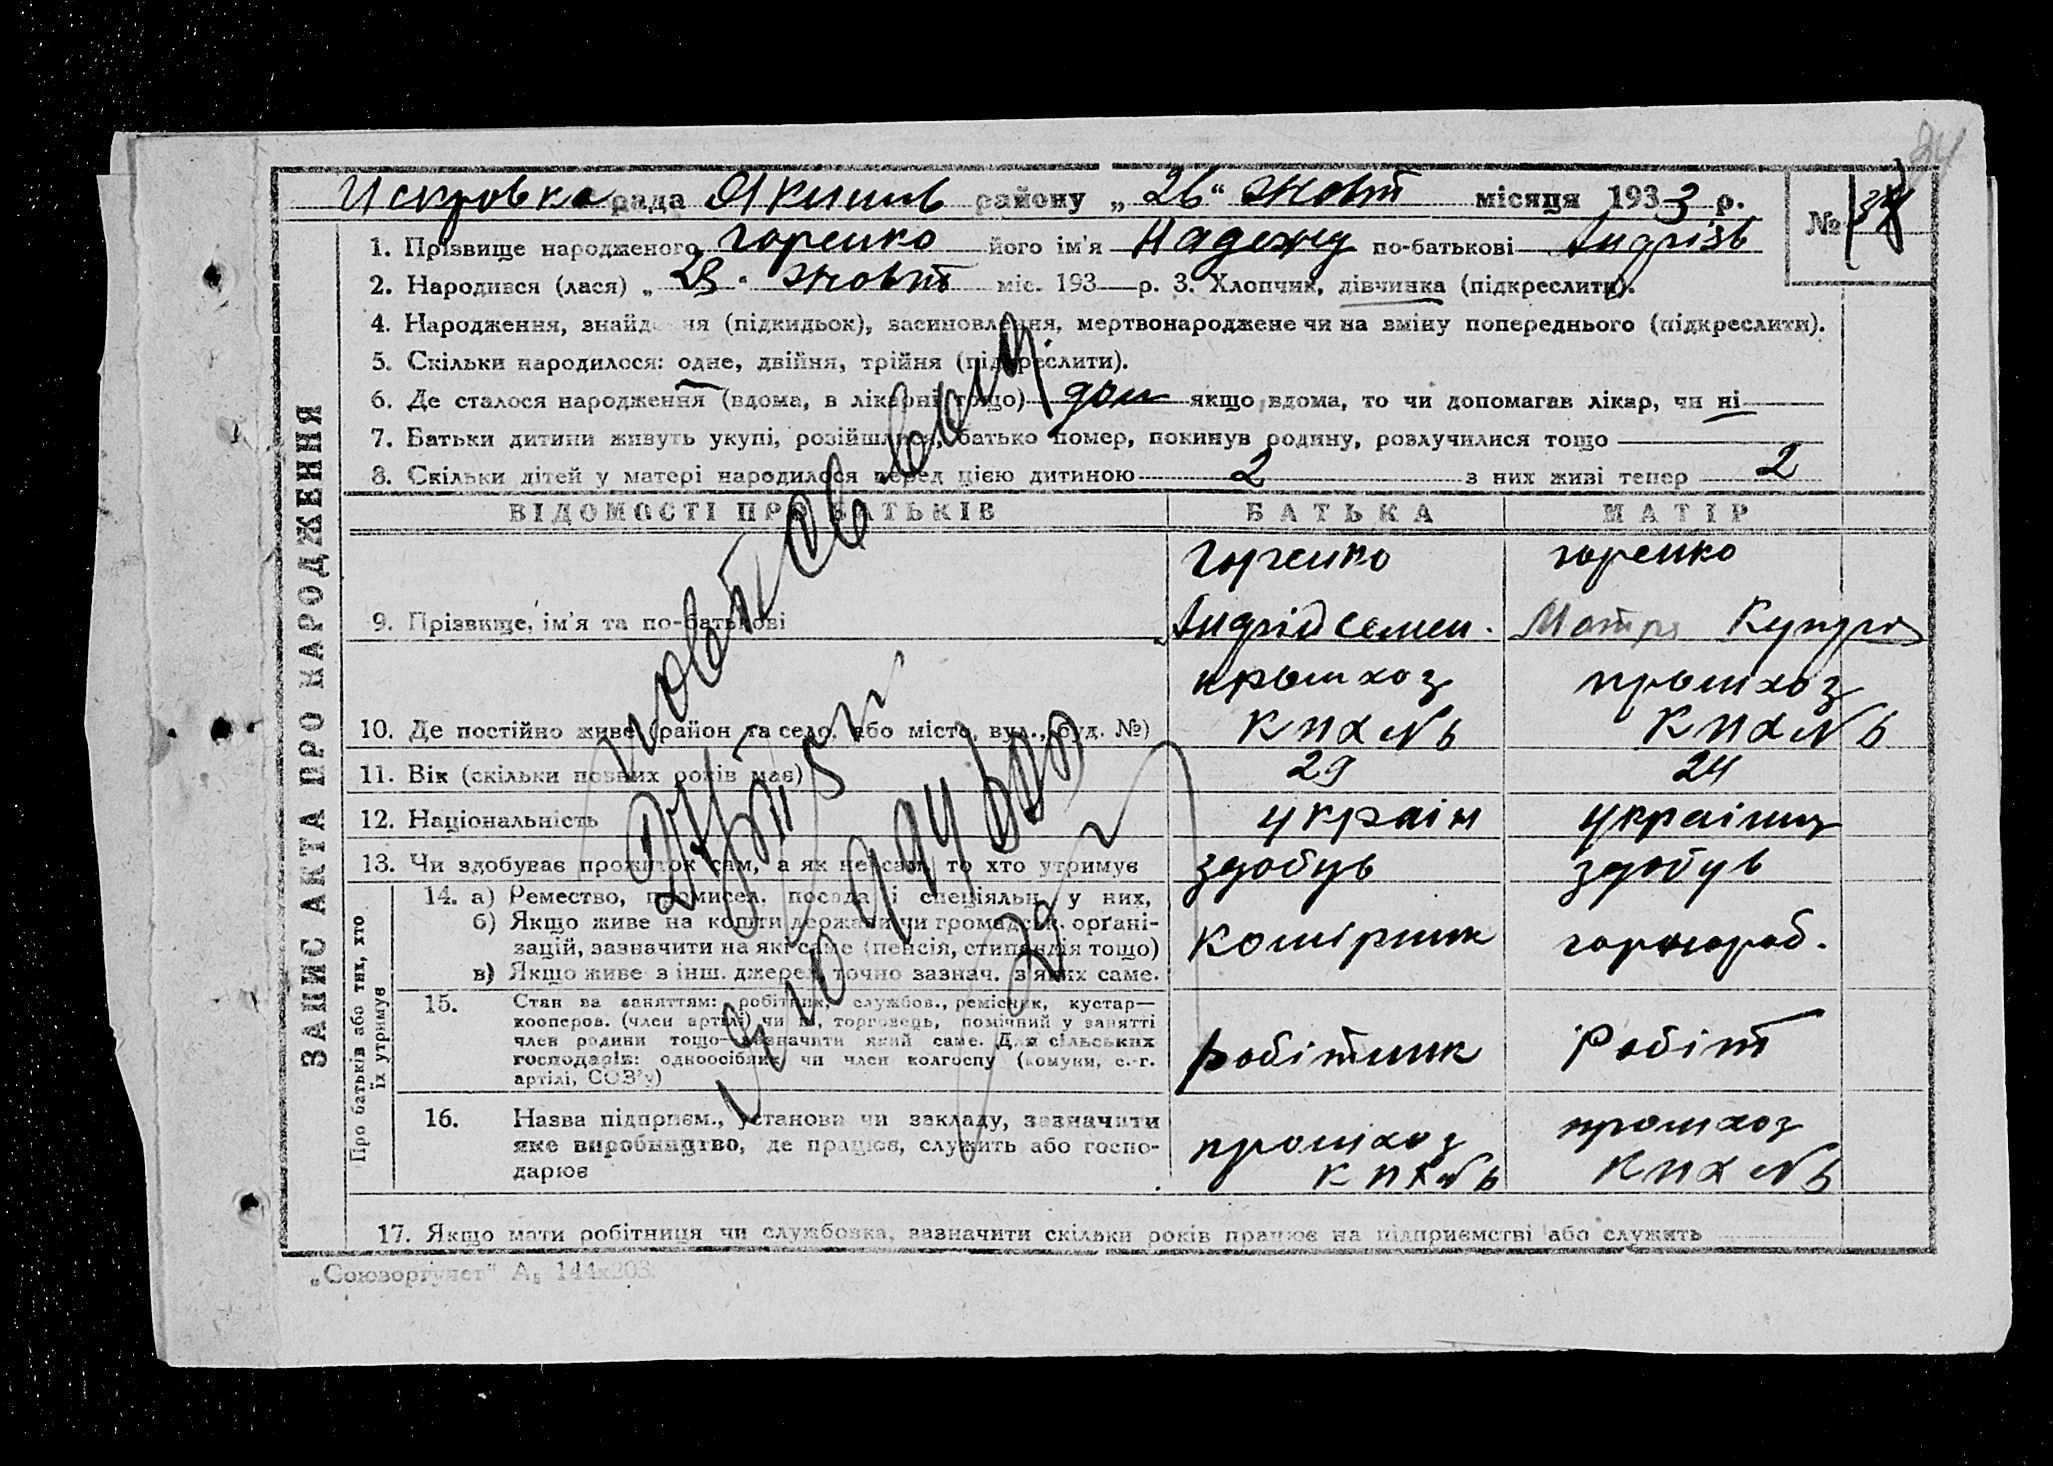 84
Искровка рада Якимів району „26“ жовт місяця 1933 р.
№ 38
1. Прізвище народженого Горенко його ім'я Надежд по-батькові Андріїв
2. Народився (лася) „ 23 “ жовт міс. 193 р. 3. Хлопчик, дівчинка (підкреслити).
4. Народження, знайдення (підкидьок), засиновлення, мертвонароджене чи на зміну попереднього (підкреслити).
5. Скільки народилося: одне, двійня, трійня (підкреслити).
6. Де сталося народження (вдома, в лікарні тощо) дом якщо вдома, то чи допомагав лікар, чи ні
7. Батьки дитини живуть укупі, розійшлися, батько помер, покинув родину, розлучилися тощо
8. Скільки дітей у матері народилося перед цією дитиною 2 з них живі тепер 2
ЗАПИС АКТА ПРО НАРОДЖЕННЯ
ВІДОМОСТІ ПРО БАТЬКІВ БАТЬКА МАТІР
Горенко горенко
9. Прізвище, ім'я та по-батькові Андрій Семен. Мотря
промхоз промхоз
10. Де постійно живе (район та село, або місто, вул., буд. №)
11. Вік (скільки повних років має) 29 24
12. Національність україн україниц
13. Чи здобуває прожиток сам, а як не сам, то хто утримує здобув здобув
Про батьків або тих, хто їх утримує
14. а) Ремество, промисел, посада і спеціяльн. у них,
б) Якщо живе на кошти держави чи громадськ. органі-
зацій, зазначити на які саме (пенсія, стипендія тощо)
в) Якщо живе з інш. джерел точно зазнач. з яких саме.
комірник чорнороб.
15. Стан за заняттям: робітник, службов., ремісник, кустар—
кооперов. (член артілі) чи ні, торговець, помічний у занятті
член родини тощо—зазначити який саме. Для сільських
господарів: одноосібник чи член колгоспу (комуни, с.-г.
артілі, СОЗ'у)
робітник Робіт
16. Назва підприєм., установи чи закладу, зазначити
яке виробництво, де працює, служить або госпо-
дарює
промхоз промхоз
17. Якщо мати робітниця чи службовка, зазначити скільки років працює на підприємстві або служить
„Союзоргучет“ А₅ 144х203.